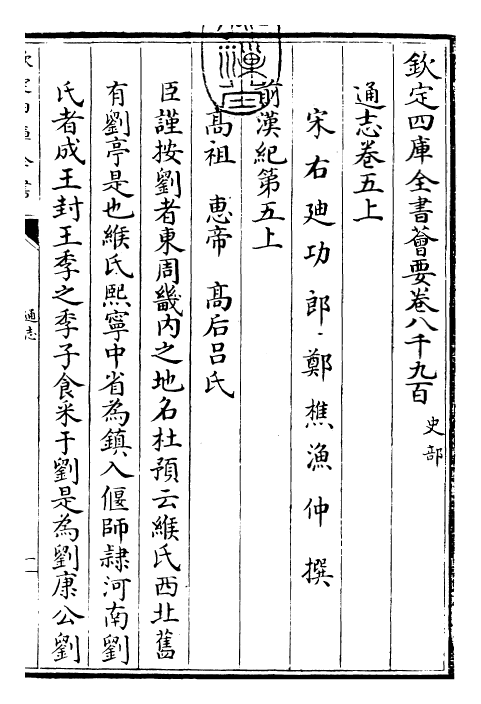 欽定四庫全書薈要卷八千九百 史部
通志卷五上
宋右迪功郎鄭樵漁仲撰
前漢紀第五上
髙祖 惠帝 髙后呂氏
臣謹按劉者東周畿内之地名杜預云緱氏西北舊
有劉亭是也緱氏熙寧中省為鎮入偃師隸河南劉
氏者成王封王季之季子食采于劉是為劉康公劉
通志